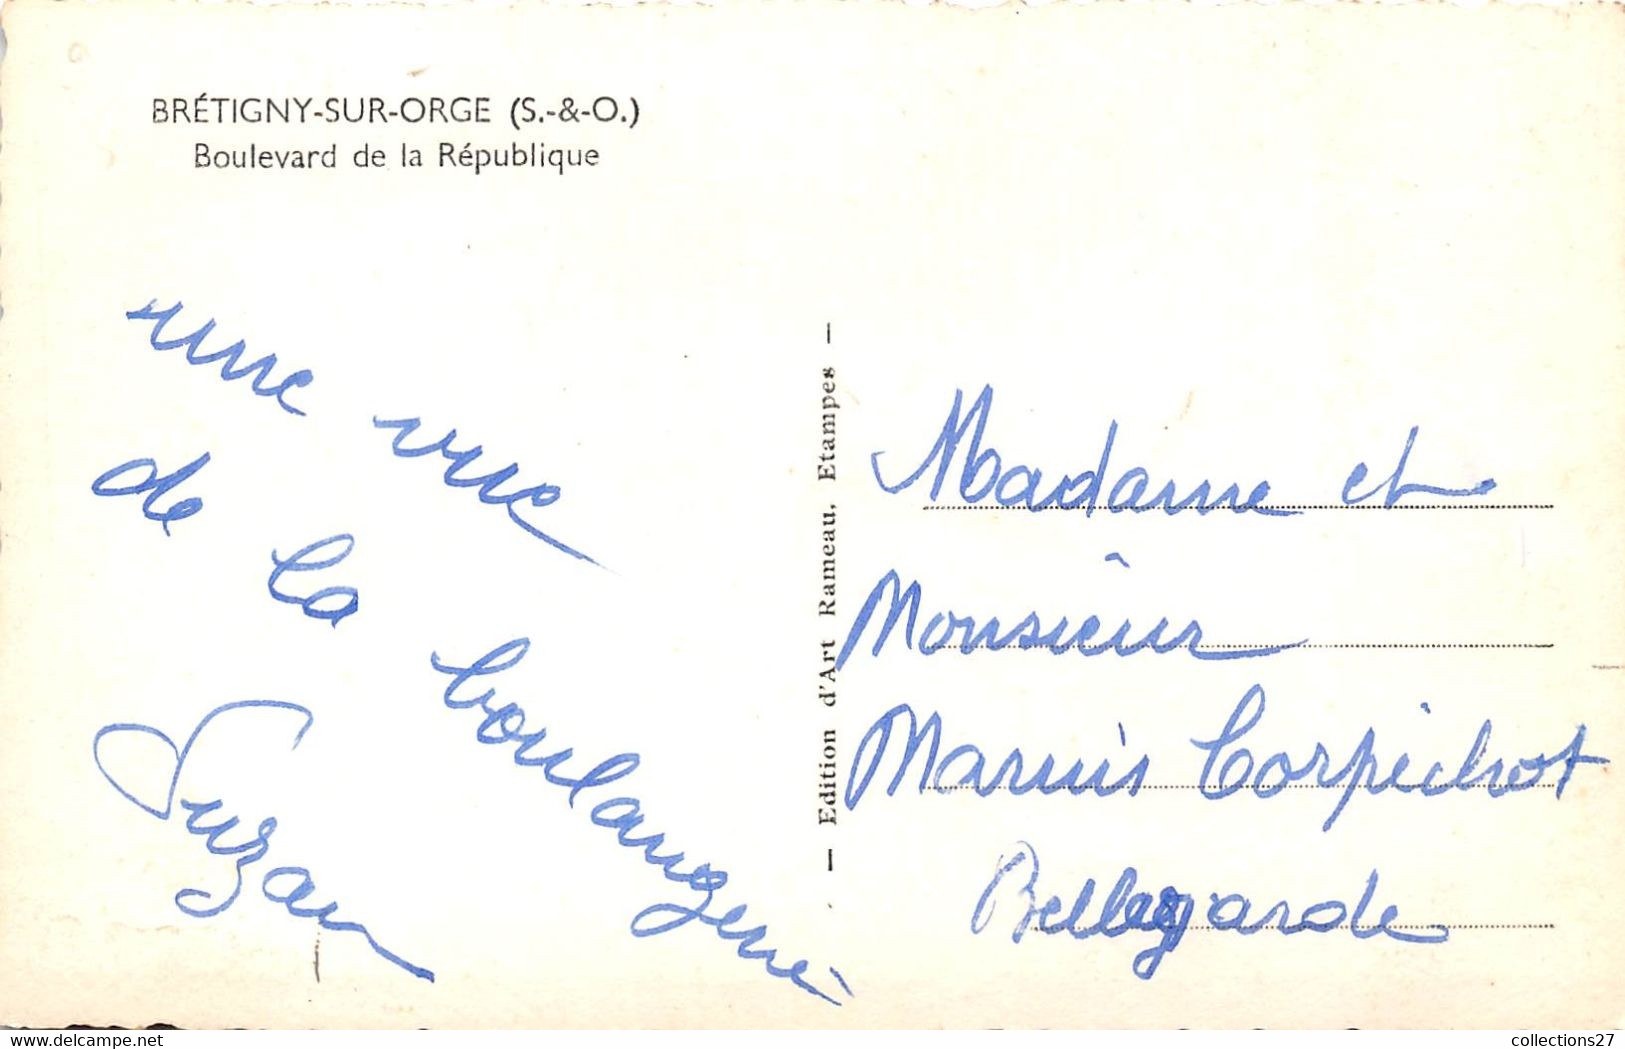 BRÉTIGNY-SUR-ORGE (S.-&-O.)
Boulevard de la République
une vue
de la boulangerie
Suzan
— Edition d'Art Rameau, Etampes —
Madame et
Monsieur
Marius Corpechot
Bellegarde
www.delcampe.net
collections27